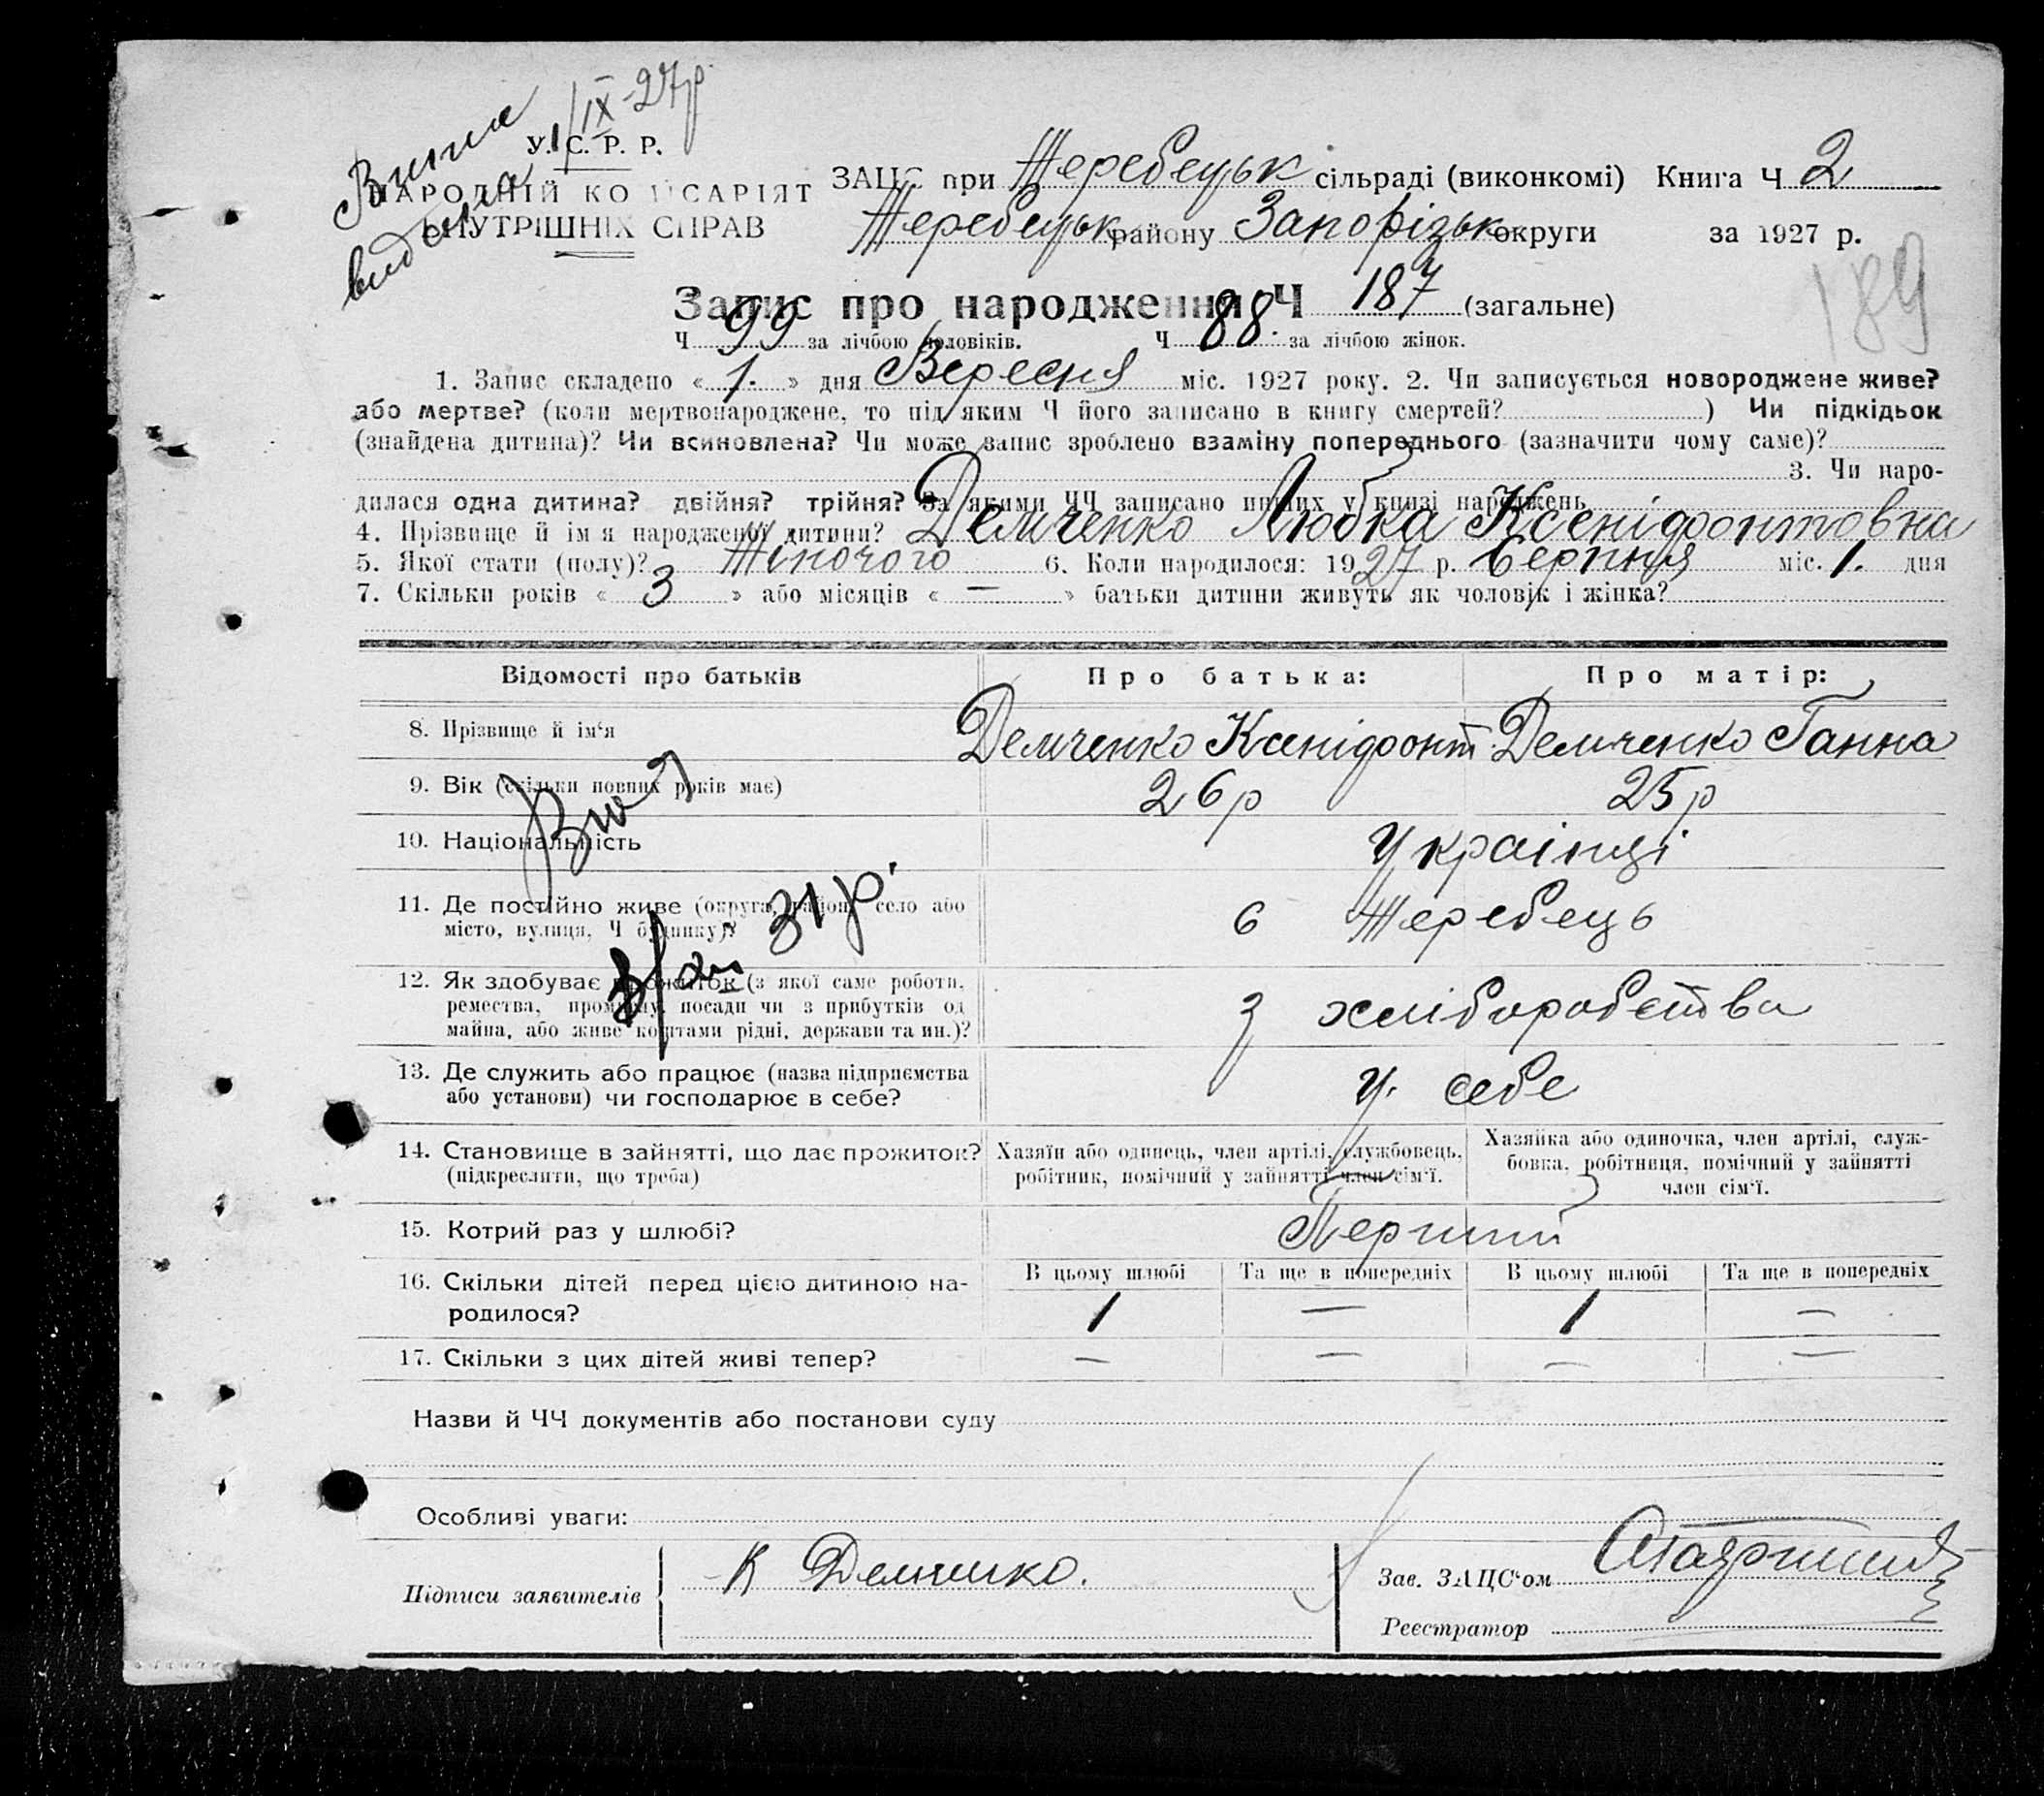 Випис
видана 1/IX-27р.
У.С.Р.Р.
НАРОДНІЙ КОМІСАРІЯТ
ВНУТРІШНІХ СПРАВ
ЗАЦС при Жеребецьк сільраді (виконкомі) Книга Ч 2
Жеребецьк району Запорізьк округи за 1927 р.
189
Запис про народження Ч 187 (загальне)
Ч 99 за лічбою чоловіків. Ч 88. за лічбою жінок.
1. Запис складено « 1. » дня Вересня міс. 1927 року. 2. Чи записується новороджене живе?
або мертве? (коли мертвонароджене, то під яким Ч його записано в книгу смертей? ) Чи підкідьок
(знайдена дитина)? Чи всиновлена? Чи може запис зроблено взаміну попереднього (зазначити чому саме)?
3. Чи наро-
дилася одна дитина? двійня? трійня? За якими ЧЧ записано инших у книзі народжень
4. Прізвище й ім'я народженої дитини? Демченко Любка Ксеніфонтовна
5. Якої стати (полу)? Жіночого 6. Коли народилося: 1927 р. Серпня міс. 1. дня
7. Скільки років « 3 » або місяців « — » батьки дитини живуть як чоловік і жінка?
Відомості про батьків Про батька: Про матір:
8. Прізвище й ім'я Демченко Ксеніфонт Демченко Ганна
9. Вік (скільки повних років має) 26р 25р
10. Національність Українці
11. Де постійно живе (округа, район, село або
місто, вулиця, Ч будинку)? с Жеребець
31р.
12. Як здобуває прожиток (з якої саме роботи,
ремества, промислу, посади чи з прибутків од
майна, або живе коштами рідні, держави та ин.)? З хліборобства
13. Де служить або працює (назва підприємства
або установи) чи господарює в себе? У себе
14. Становище в зайнятті, що дає прожиток?
(підкреслити, що треба)
Хазяїн або одинець, член артілі, службовець,
робітник, помічний у зайнятті член сім'ї.
Хазяйка або одиночка, член артілі, служ-
бовка, робітниця, помічний у зайнятті
член сім'ї.
15. Котрий раз у шлюбі? Перший
16. Скільки дітей перед цією дитиною на-
родилося?
В цьому шлюбі Та ще в попередніх В цьому шлюбі Та ще в попередніх
1 — 1 —
17. Скільки з цих дітей живі тепер? — — — —
Назви й ЧЧ документів або постанови суду
Особливі уваги:
Підписи заявителів К Демченко.
Зав. ЗАЦС'ом
Реєстратор